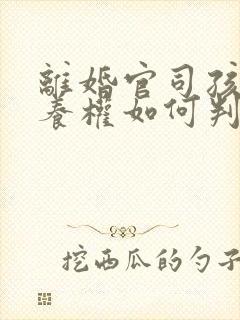 離婚官司孩
養權如何判
挖西瓜的勺子